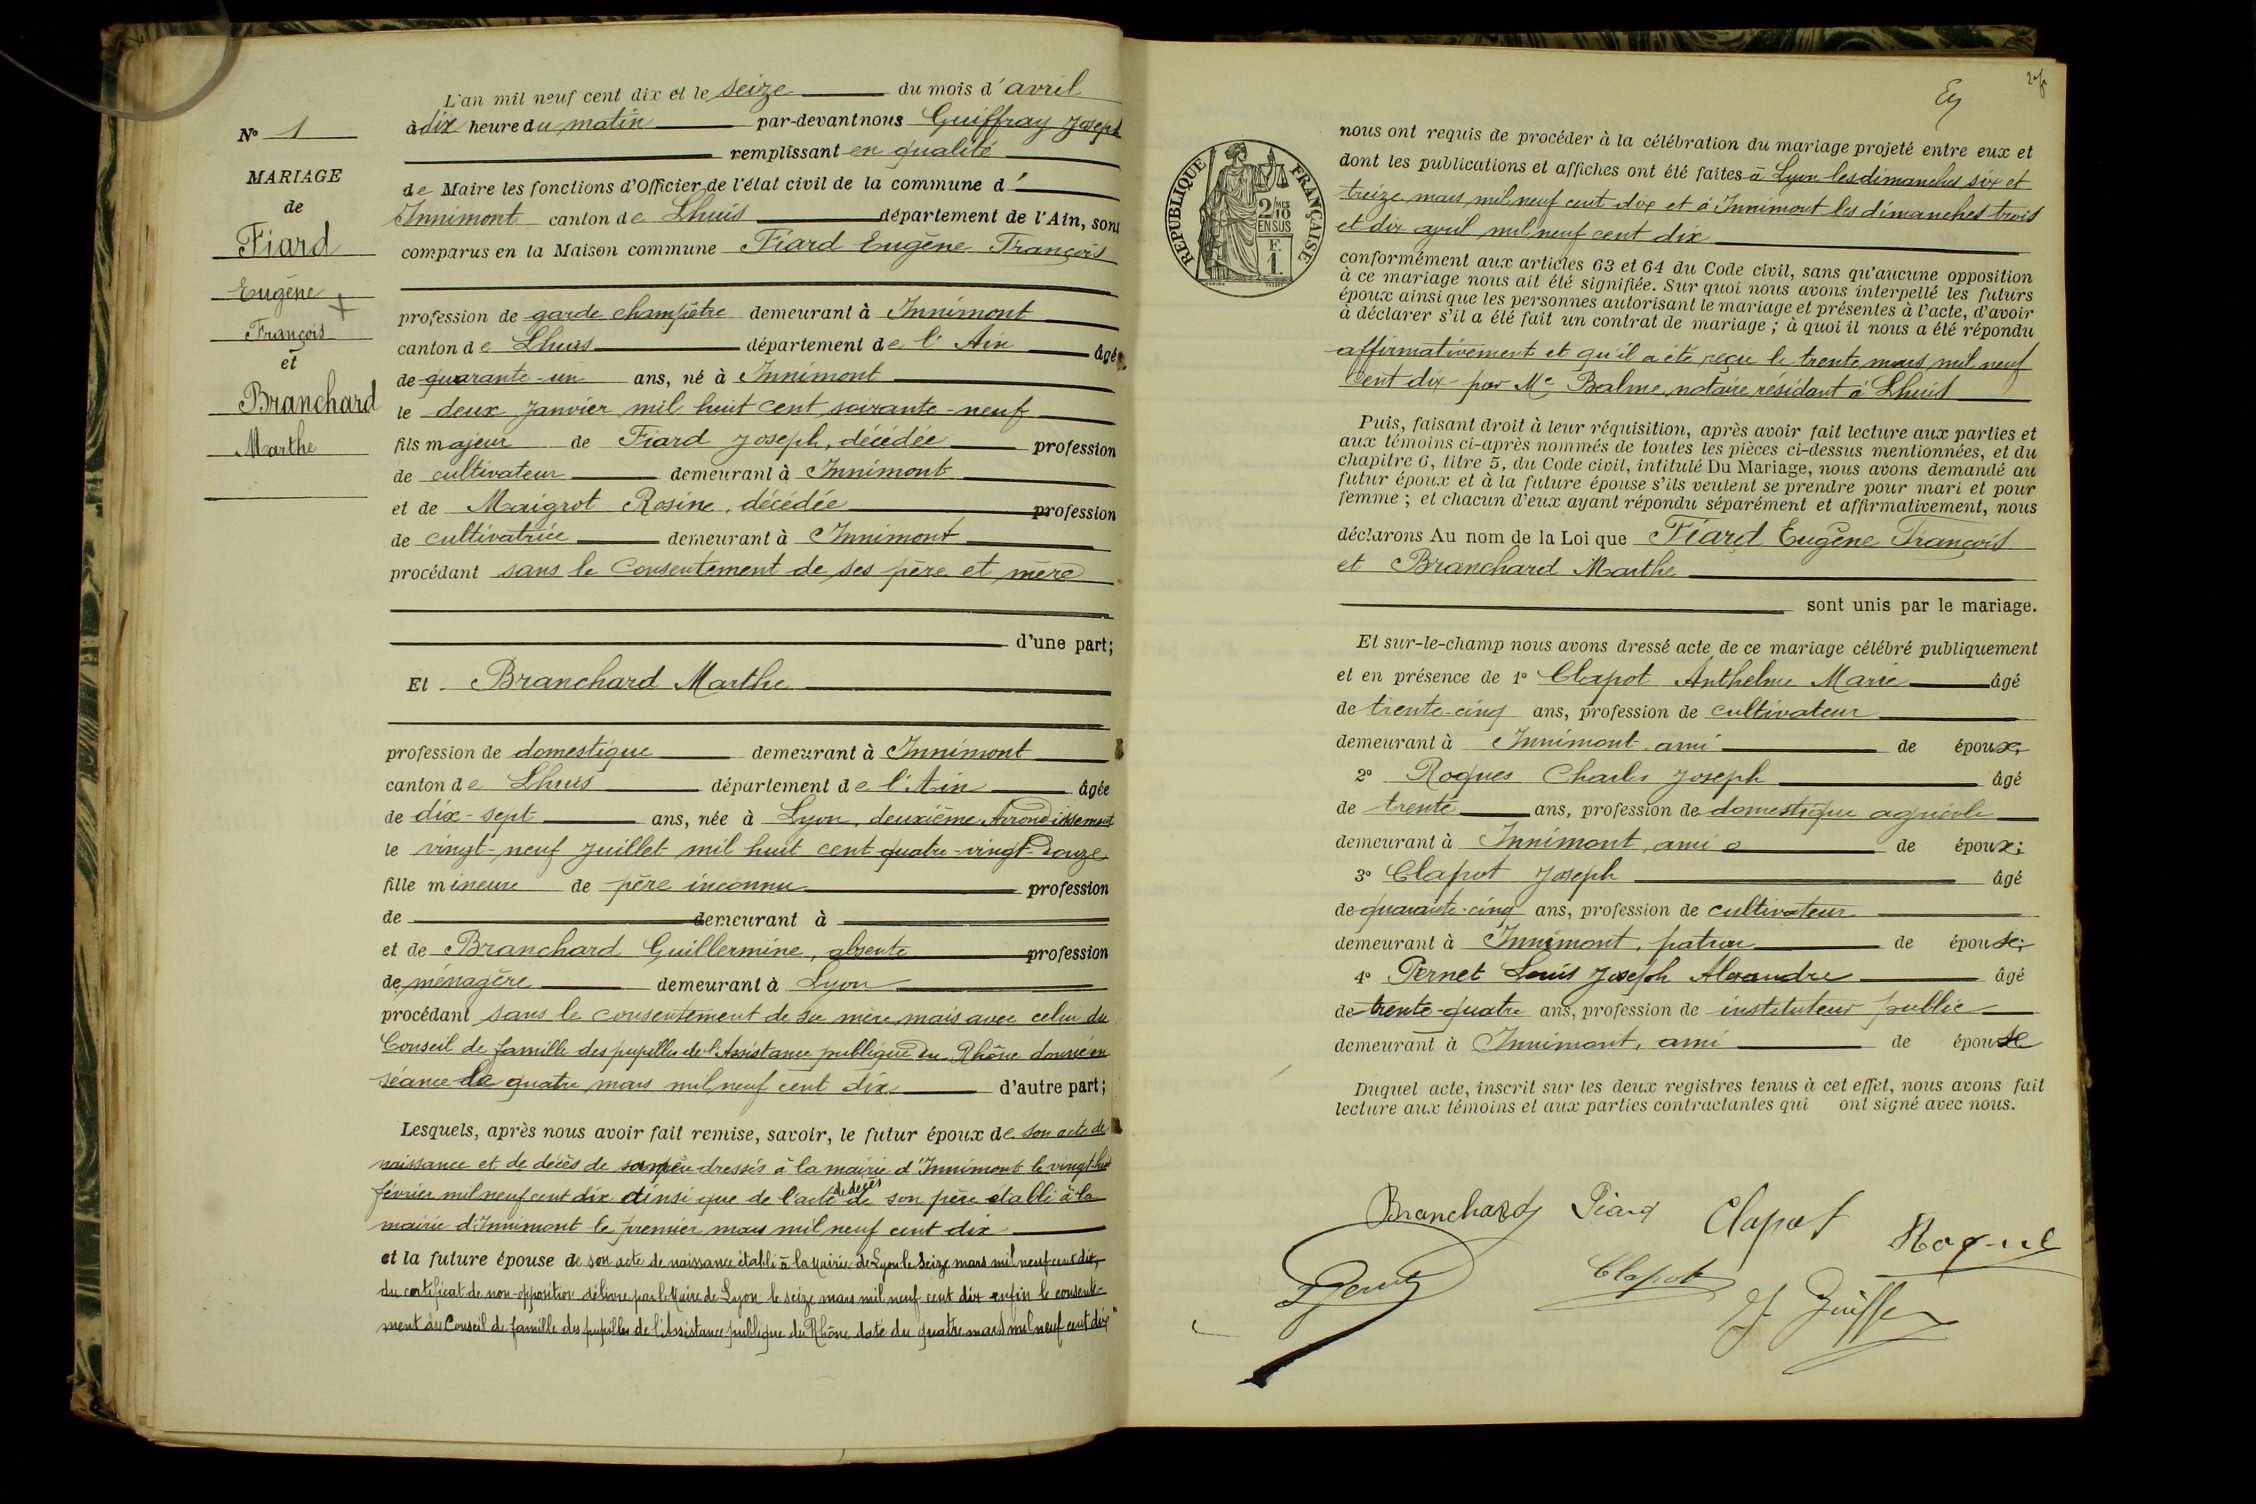 N° 1
MARIAGE
de
Fiard
Eugène
François
et
Branchard
Marthe
L'an mil neuf cent dix et le seize du mois d'avril
à dix heure du matin par-devant nous Guiffray Joseph
remplissant en qualité
de Maire les fonctions d'Officier de l'état civil de la commune d'
Innimont canton de Lhuis département de l'Ain, sont
comparus en la Maison commune Fiard Eugène François
profession de garde champêtre demeurant à Innimont
canton de Lhuis département de l'Ain âgé
de quarante-un ans, né à Innimont
le deux Janvier mil huit cent soixante-neuf
fils majeur de Fiard Joseph, décédée profession
de cultivateur demeurant à Innimont
et de Maigrot Rosine, décédée profession
de cultivatrice demeurant à Innimont
procédant sans le consentement de ses père et mère
d'une part;
Et Branchard Marthe
profession de domestique demeurant à Innimont
canton de Lhuis département de l'Ain âgée
de dix-sept ans, née à Lyon, deuxième Arrondissement
le vingt-neuf Juillet mil huit cent quatre-vingt-douze
fille mineure de père inconnu profession
de demeurant à
et de Branchard Guillermine, absente profession
de ménagère demeurant à Lyon
procédant sans le consentement de sa mère mais avec celui du
Conseil de famille des pupilles de l'Assistance publique du Rhône donné en
séance le quatre mars mil neuf cent dix d'autre part;
Lesquels, après nous avoir fait remise, savoir, le futur époux de son acte de
naissance et de décès de dressés à la mairie d'Innimont le vingt-huit
février mil neuf cent dix ainsi que de l'acte de décès de son père établi à la
mairie d'Innimont le premier mars mil neuf cent dix
et la future épouse de son acte de naissance établi à la Mairie de Lyon le seize mars mil neuf cent dix,
du certificat de non-opposition délivré par le Maire de Lyon le seize mars mil neuf cent dix enfin le consente-
ment du Conseil de famille des pupilles de l'Assistance publique du Rhône date du quatre mars mil neuf cent dix
RÉPUBLIQUE FRANÇAISE
2/10 MES
EN SUS
F.
1.
nous ont requis de procéder à la célébration du mariage projeté entre eux et
dont les publications et affiches ont été faites à Lyon les dimanches six et
treize mars mil neuf cent dix et à Innimont les dimanches trois
et dix avril mil neuf cent dix
conformément aux articles 63 et 64 du Code civil, sans qu'aucune opposition
à ce mariage nous ait été signifiée. Sur quoi nous avons interpellé les futurs
époux ainsi que les personnes autorisant le mariage et présentes à l'acte, d'avoir
à déclarer s'il a été fait un contrat de mariage ; à quoi il nous a été répondu
affirmativement et qu'il a été reçu le trente mars mil neuf
cent dix par Me Balme, notaire résidant à Lhuis
Puis, faisant droit à leur réquisition, après avoir fait lecture aux parties et
aux témoins ci-après nommés de toutes les pièces ci-dessus mentionnées, et du
chapitre 6, titre 5, du Code civil, intitulé Du Mariage, nous avons demandé au
futur époux et à la future épouse s'ils veulent se prendre pour mari et pour
femme ; et chacun d'eux ayant répondu séparément et affirmativement, nous
déclarons Au nom de la Loi que Fiard Eugène François
et Branchard Marthe
sont unis par le mariage.
Et sur-le-champ nous avons dressé acte de ce mariage célébré publiquement
et en présence de 1° Clapot Anthelme Marie âgé
de trente-cinq ans, profession de cultivateur
demeurant à Innimont, ami de époux;
2° Roques Charles Joseph âgé
de trente ans, profession de domestique agricole
demeurant à Innimont, ami de époux;
3° Clapot Joseph âgé
de quarante-cinq ans, profession de cultivateur
demeurant à Innimont, patron de épouse;
4° Pernet Louis Joseph Alexandre âgé
de trente-quatre ans, profession de instituteur public
demeurant à Innimont, ami de épouse
Duquel acte, inscrit sur les deux registres tenus à cet effet, nous avons fait
lecture aux témoins et aux parties contractantes qui ont signé avec nous.
Branchard Fiard Clapot Roques
Pernet Clapot J Guiffray